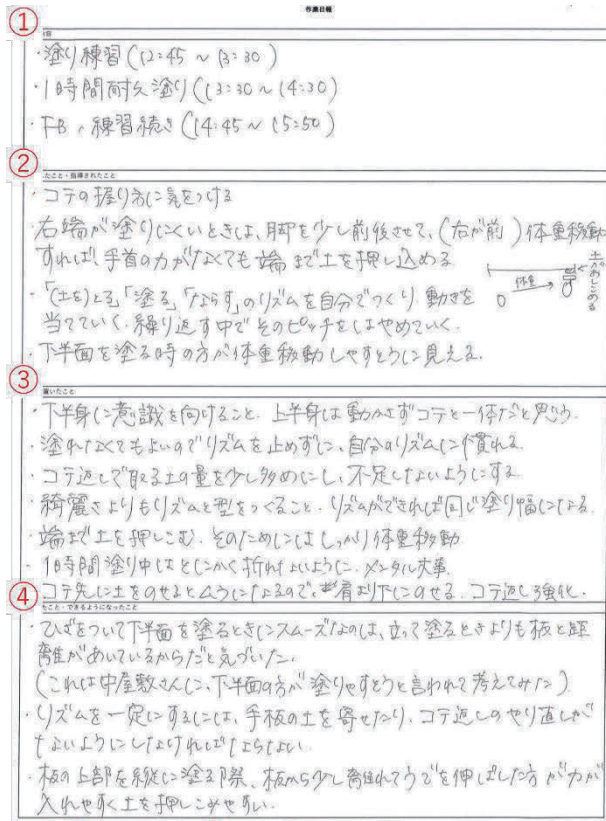 作業日報
①
内容
・塗り練習(12:45 ~ 13:30)
・1時間耐久塗り(13:30 ~ 14:30)
・FB、練習続き(14:45 ~ 15:50)
②
たこと・指導されたこと
・コテの握り方に気をつける
右端が塗りにくいときは、脚を少し前後させて、(右が前)体重移動
すれば、手首の力がなくても端まで土を押し込める
土がおしこめる
体重
・「(土を)とる」「塗る」「ならす」のリズムを自分でつくり、動きを
当てていく。繰り返す中でそのピッチをはやめていく。
・下半面を塗る時の方が体重移動しやすそうに見える。
③
置いたこと
・下半身に意識を向けること。上半身は動かさずコテと一体だと思う。
・塗れなくてもよいのでリズムを止めずに、自分のリズムに慣れる
・コテ返しで取る土の量を少し多めにし、不足しないようにする
・綺麗さよりもリズムと型をつくること。リズムができれば同じ塗り幅になる。
・端まで土を押しこむ。そのためにはしっかり体重移動
・1時間塗り中はとにかく折れないように。メンタル大事。
・コテ先に土をのせるとムラになるので、肩より下にのせる。コテ返し強化。
④
たこと・できるようになったこと
・ひざをついて下半面を塗るときにスムーズなのは、立って塗るときよりも板と距
離があいているからだと気づいた。
(これは中屋敷さんに、下半面の方が塗りやすそうと言われて考えてみた)
・リズムを一定にするには、手板の土を寄せたり、コテ返しのやり直しが
ないようにしなければならない。
・板の上部を縦に塗る際、板から少し離れてうでを伸ばした方が力が
入れやすく土を押しこみやすい。